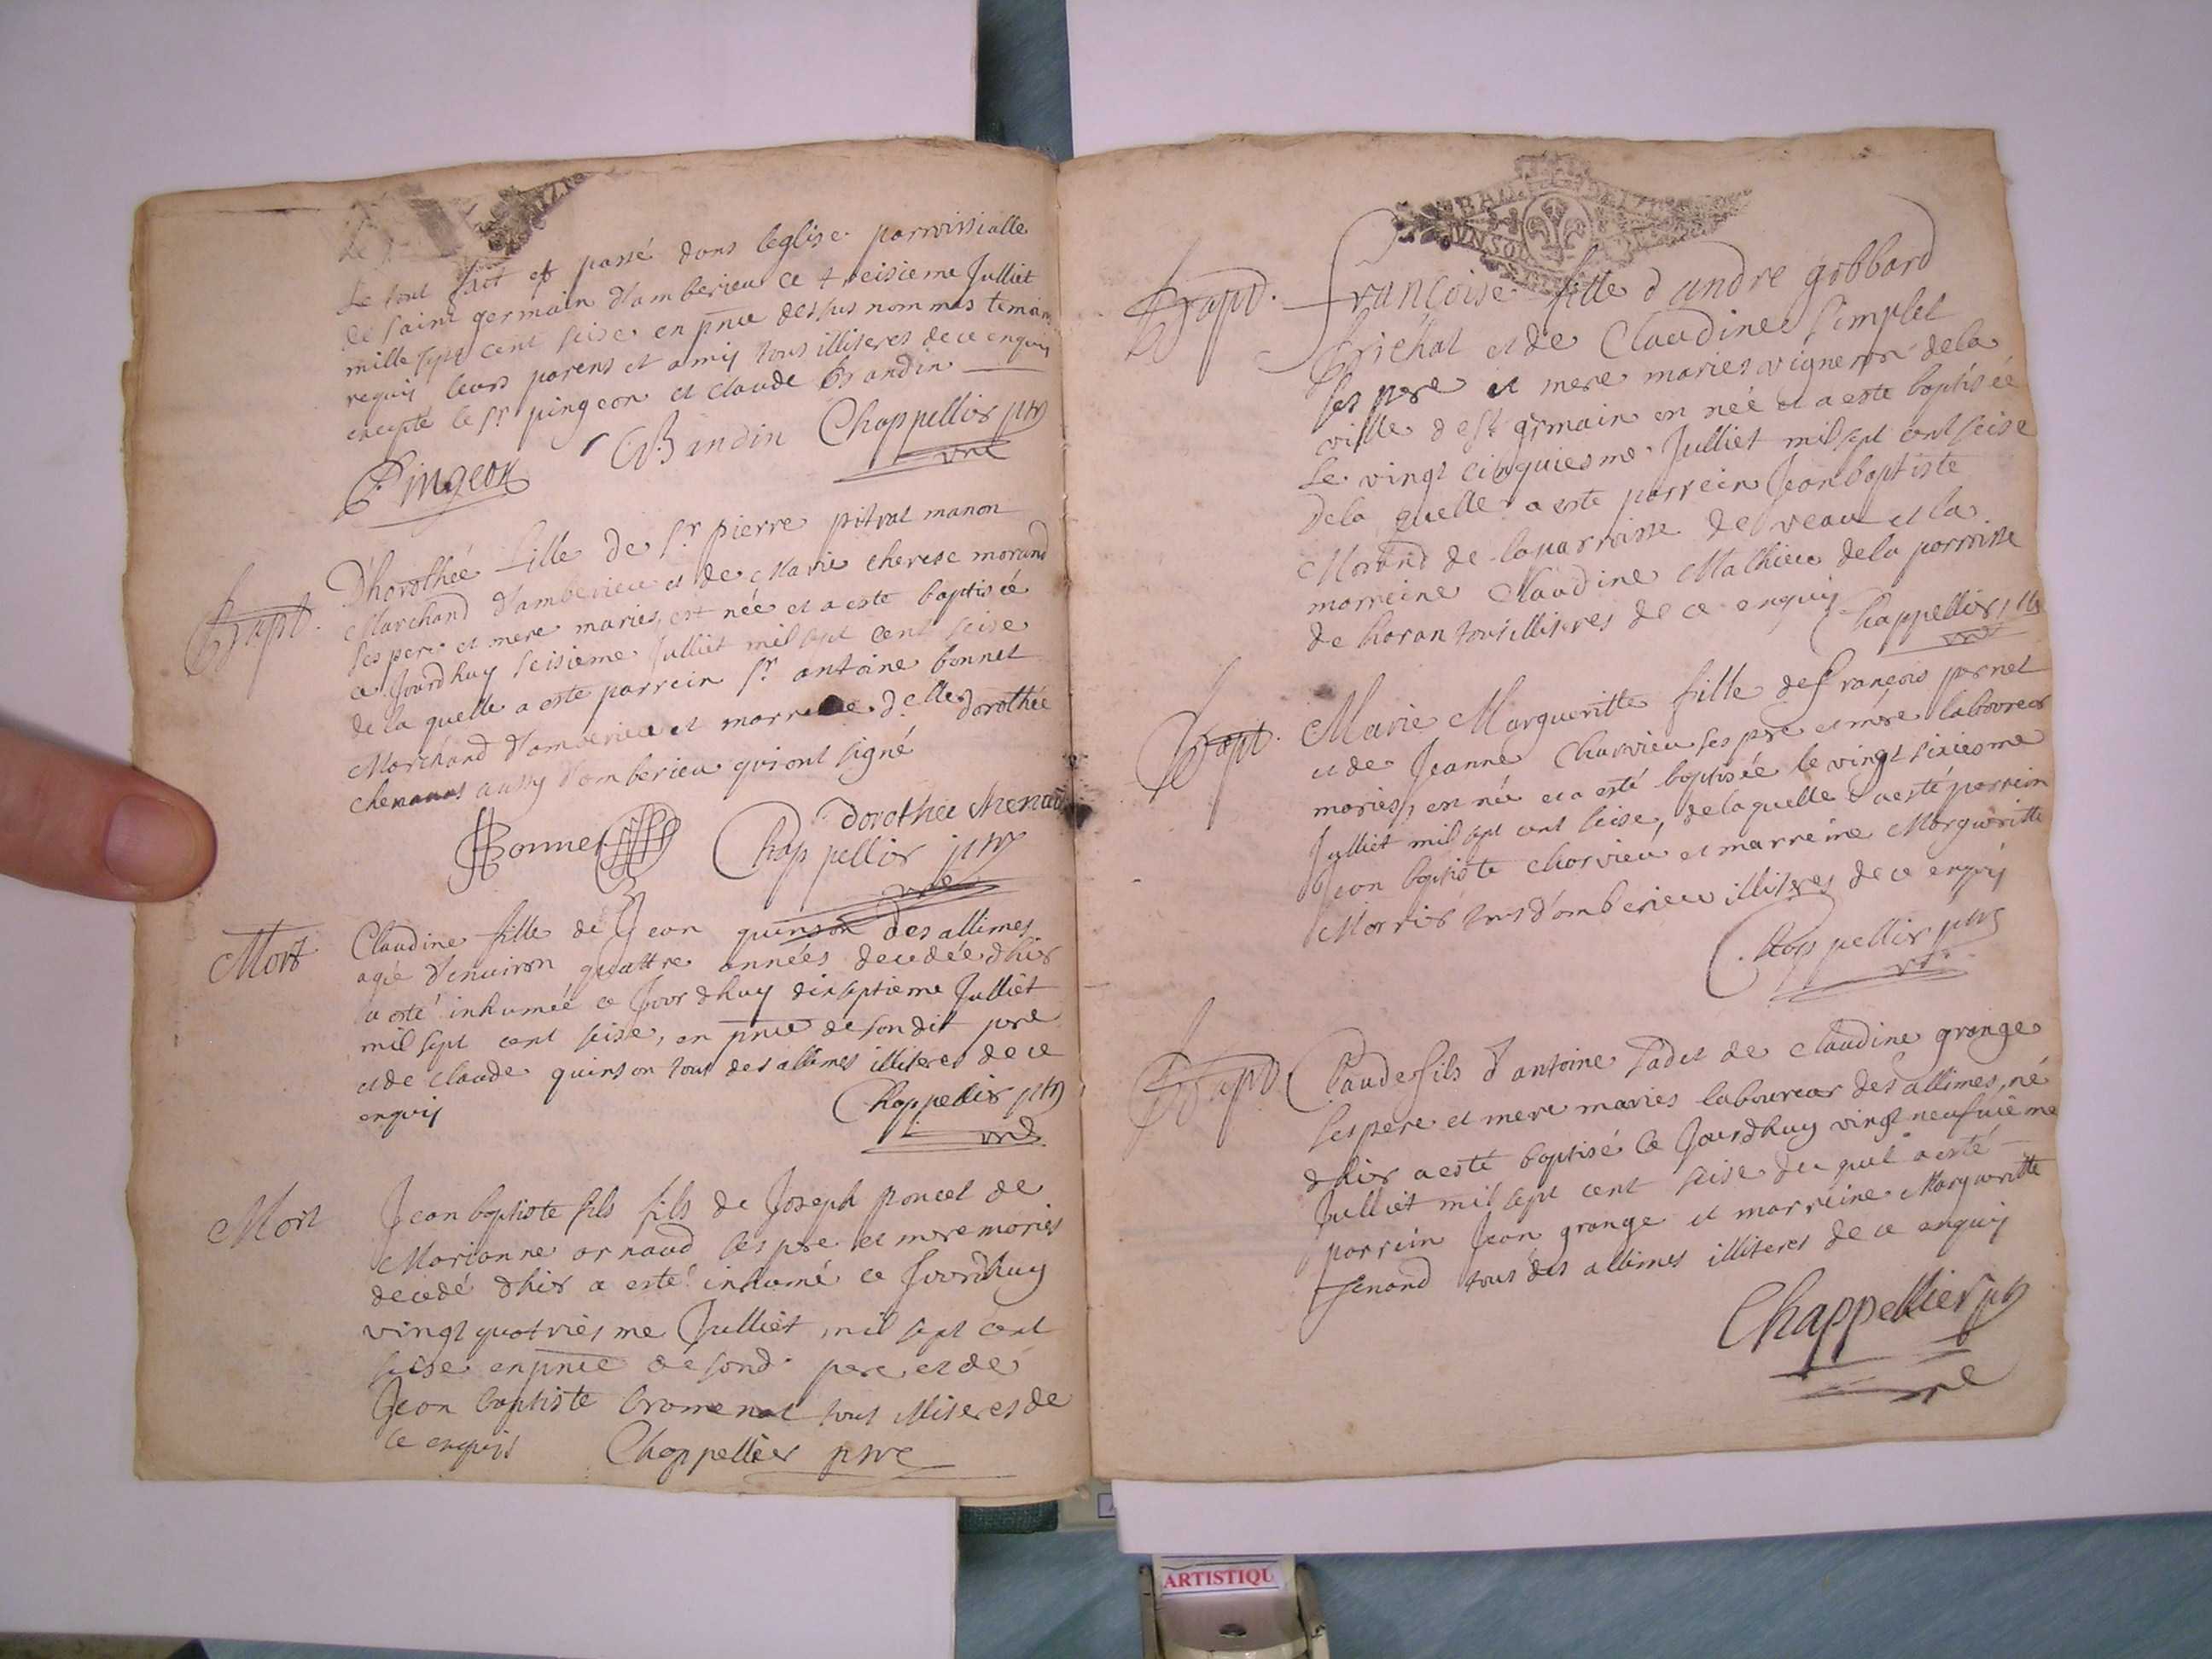 Le tout fait et passé dans leglise parroissialle
de saint germain d'amberieu ce treisieme Julliet
mille sept cent seise en pnce dessus nommes temoins
requis leurs parens et amis tous illiteres de ce enquis
excepté le sr pingeon et claude Brandin
Pingeon C Brandin Chappellier ptre
vre
Bapt.
D'horothée fille de sr pierre pitrat manon
Marchand d'amberieu et de Marie therese morand
ses pere et mere maries, est née et a este baptisée
ce Jourdhuy seisieme Julliet mil sept cent seise
de la quelle a este parrein sr antoine bonnet
Marchand d'amberieu et marreine delle dorothée
aussy d'amberieu qui ont signé
Dorothée
Bonnet Chappellier ptre
vre
Mort
Claudine fille de Jean quinson des allimes
agée d'environ quattre années decedée dhier
a esté inhumée ce Jourdhuy dixseptieme Julliet
mil sept cent seise, en pnce de son dit pere
et de claude quinson tous des allimes illiteres de ce
enquis Chappellier ptre
vre
Mort
Jean baptiste fils fils de Joseph poncet de
Marianne arnaud ses pere et mere maries
decedé dhier a esté inhumé ce Jourdhuy
vingt quatriesme Julliet mil sept cent
seise en pnce de sond pere et de
Jean baptiste tous illiteres de
ce enquis Chappellier ptre
Bapt.
françoise fille d'andre gobbard
et de Claudine simplet
ses pere et mere maries vigneron de la
ville de st germain en née et a este baptisée
Le vingt cinquiesme Julliet mil sept cent seise
De la quelle a este parrein Jean baptiste
Morand de la parroisse de veau et la
marreine Claudine Mathieu de la parroisse
de tous illiteres de ce enquis Chappellier ptre
vre
Bapt.
Marie Margueritte fille de françois pernet
et de Jeanne Charvieu ses pere et mere laboureur
maries, en née et a esté baptisée le vingt sixiesme
Julliet mil sept cent seise, de la quelle a esté parrein
Jean baptiste charvieu et marreine Margueritte
tous d'amberieu illiteres de ce enquis
Chappellier ptre
vre
Bapt
Claude fils d'antoine et de claudine grange
ses pere et mere maries laboureur des allimes, né
dhier a esté baptisé ce Jourdhuy vingt neufvieme
Julliet mil sept cent seise du quel a esté
parrein Jean grange et marreine Margueritte
tenand tous des allimes illiteres de ce enquis
Chappellier ptre
vre
ARTISTIQU